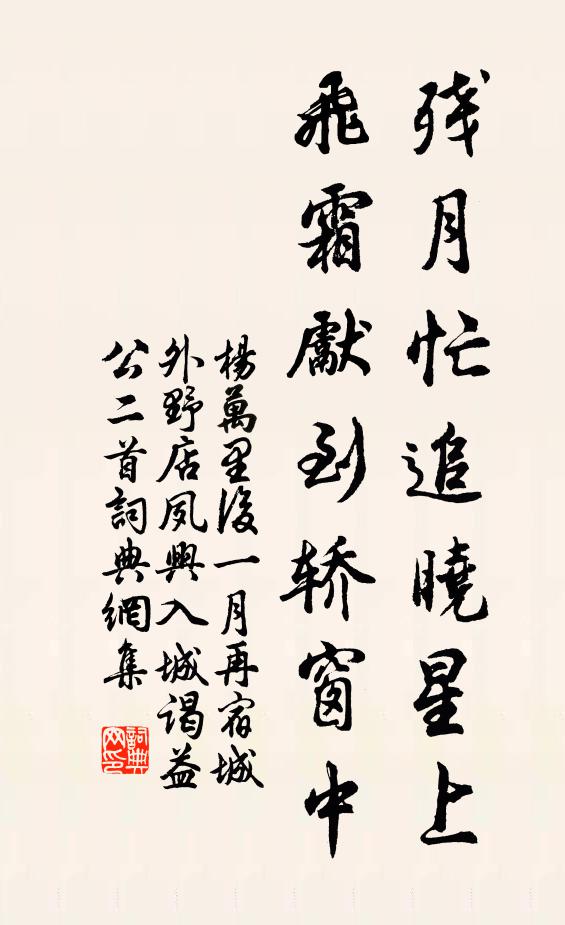 残月忙追曉星上
飛霜獻到轿窗中
楊萬里後一月再宿城
外野店夙興入城谒益
公二首詞典網集
詞典网印